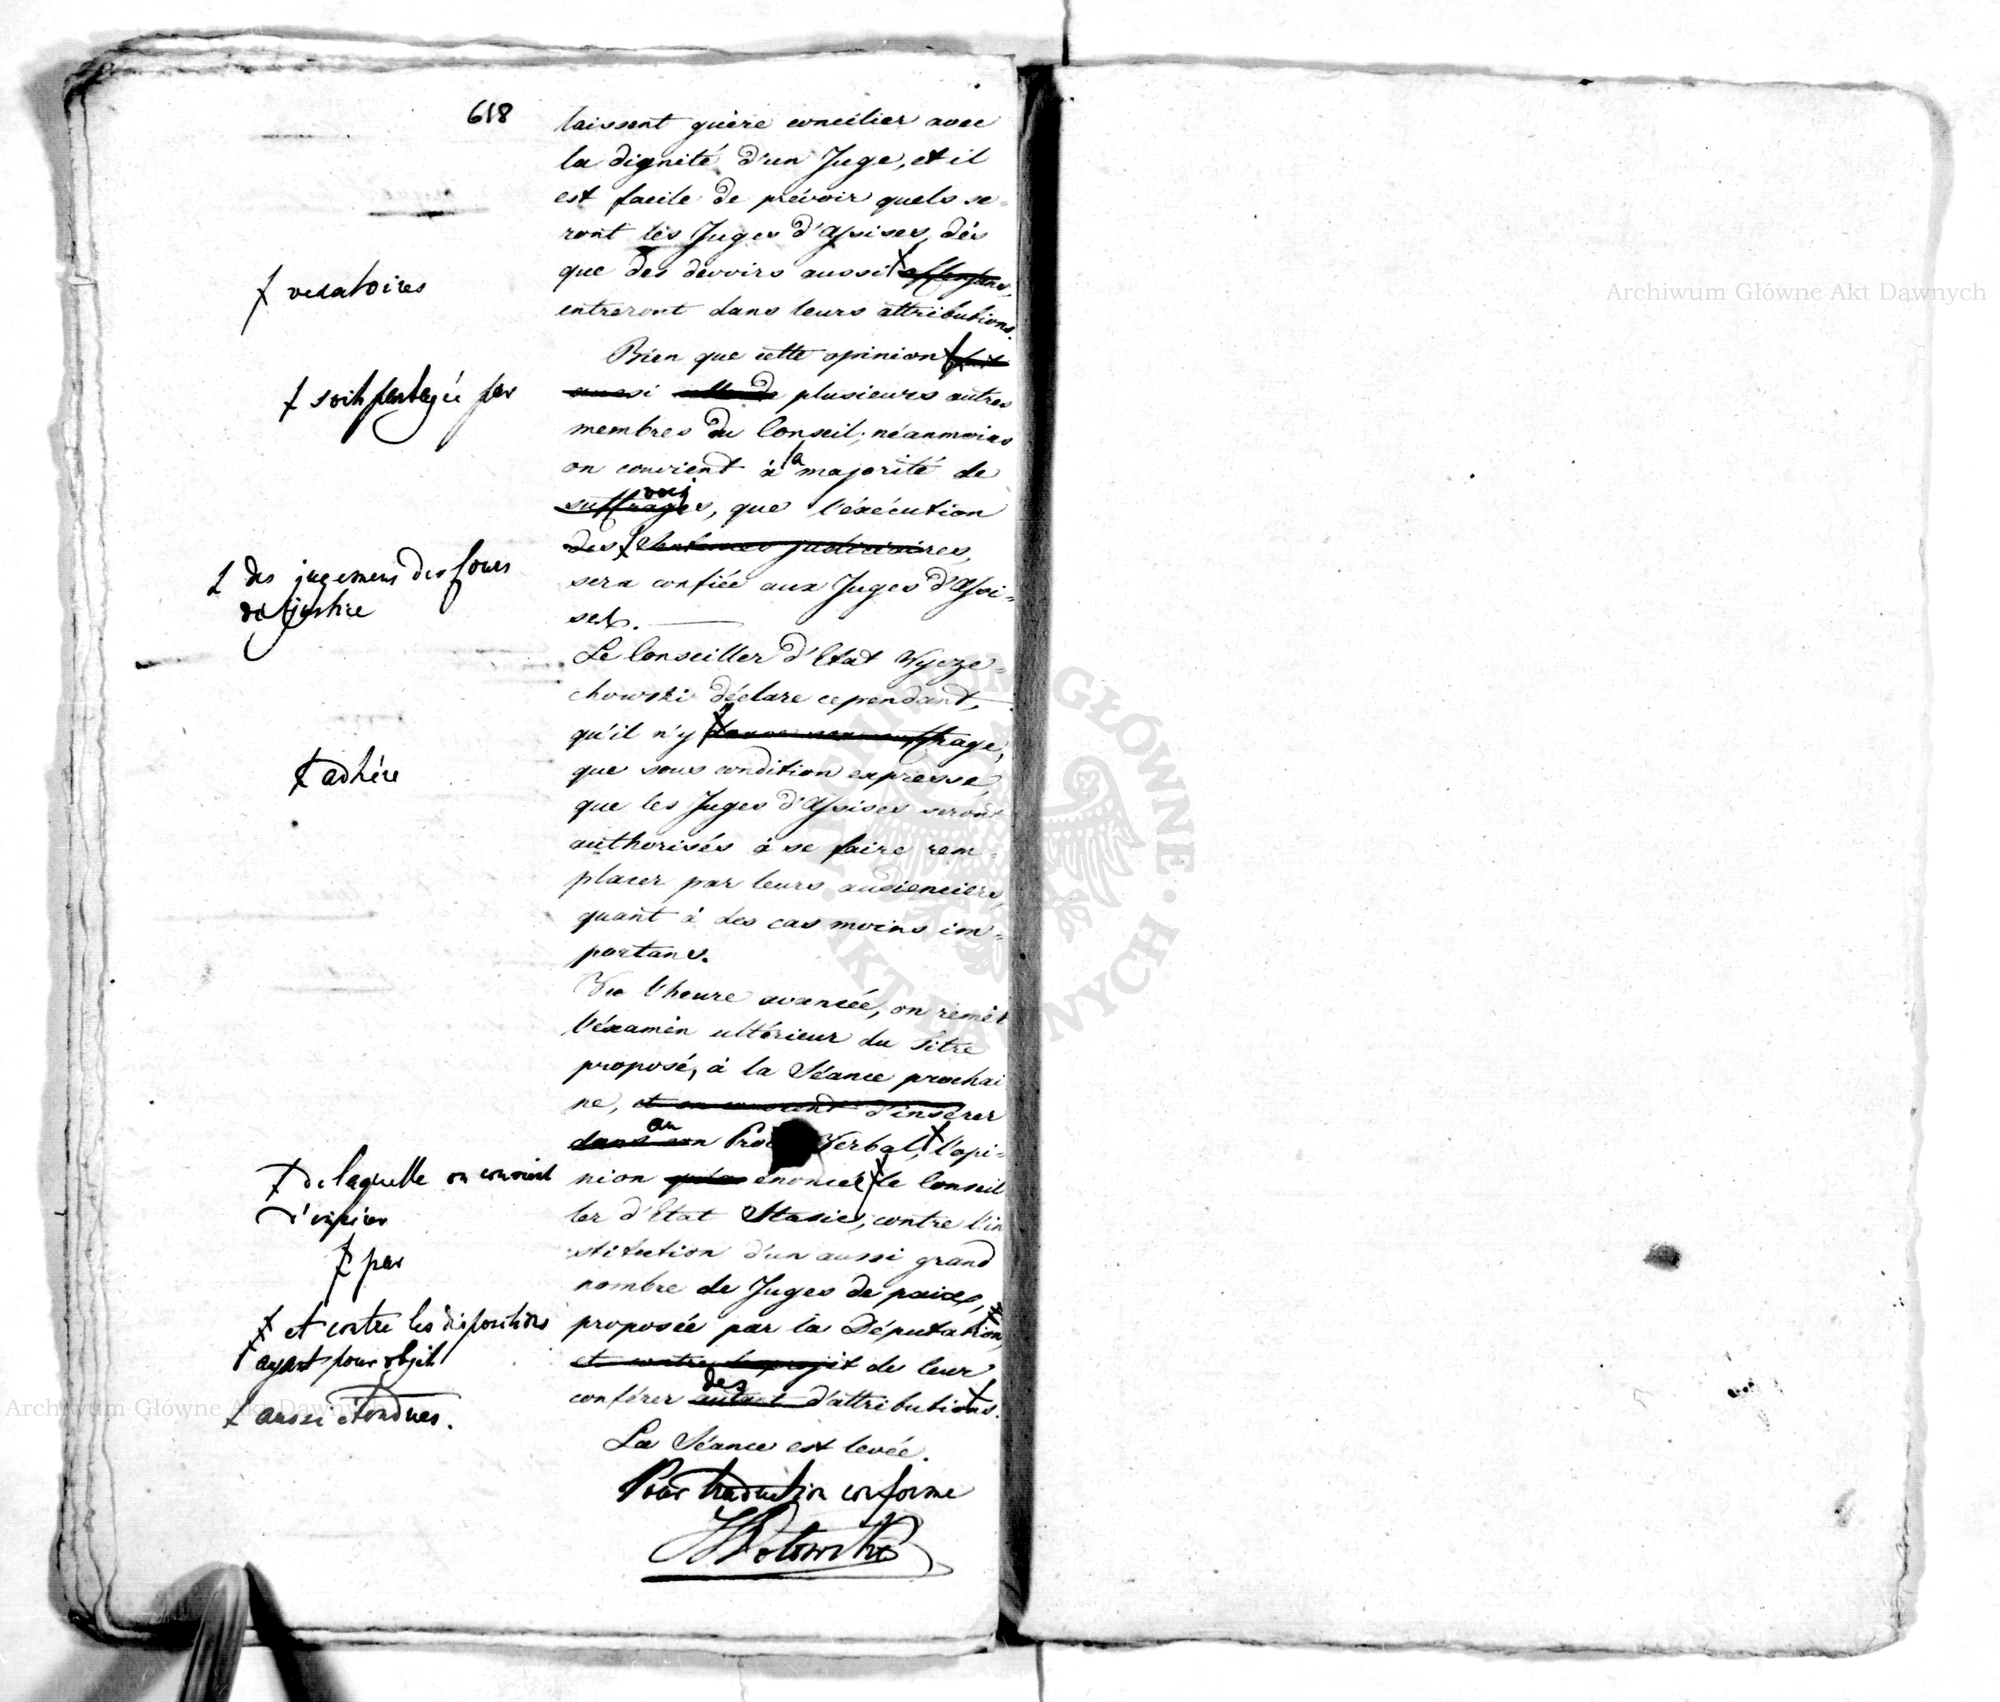 618
laissent guère concilier avec
la dignité d'un Juge, et il
est facile de prévoir quels se-
ront les Juges d'Assises, dès
que des devoirs aussi
+ vexatoires
entreront dans leurs attributions.
Bien que cette opinion
+ soit partagée par
aussi celle de plusieurs autres
membres du Conseil; néanmoins
on convient à la majorité de
suffrages, voix que l'éxécution
des sentences judiciaires,
+ des jugemens des Cours
de justice
sera confiée aux Juges d'Assi-
ses.
Le Conseiller d'Etat Wycze-
chowski déclare cependant,
qu'il n'y donne son suffrage,
+ adhére
que sous condition expresse
que les Juges d'Assises seront
authorisés à se faire rem-
placer par leurs audienciers,
quant à des cas moins im-
portans.
Vu l'heure avancée, on remet
l'éxamen ultérieur du Titre
proposé, à la Séance prochai
ne, et on convient d'insérer
dans son au Procès Verbal, + l'opi-
+ de laquelle on convient
nion énoncée + le Conseil
ler d'Etat Stasic, contre l'in
+ par
stitution d'un aussi grand
nombre de Juges de paix,
+ et contre les dispositions
proposée par la Députation,
+ ayant pour objet
et contre le projet de leur
conférer autant des d'attributions.
+ aussi étendues.
La Séance est levée.
Pour traduction conforme
Archiwum Główne Akt Dawnych
Archiwum Główne Akt Dawnych
ARCHIWUM GŁÓWNE AKT DAWNYCH